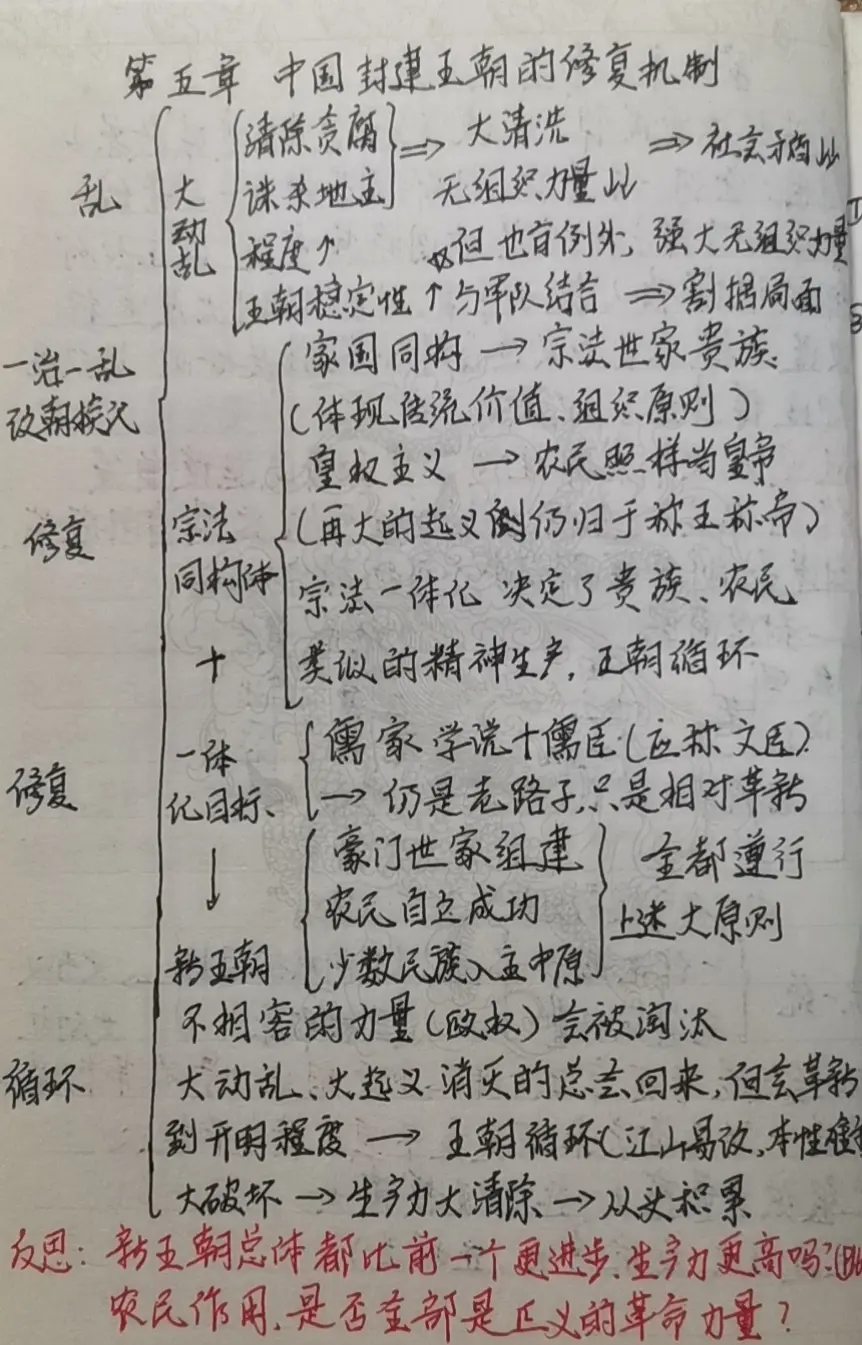 第五章 中国封建王朝的修复机制
乱
大动乱
清除贪腐
诛杀地主
⇒ 大清洗
无组织力量↓
⇒ 社会矛盾↓
程度↑
但也有例外, 强大无组织力量
王朝稳定性↑
与军队结合 ⇒ 割据局面
一治一乱
改朝换代
修复
宗法
同构体
+
家国同构 → 宗法世家贵族
(体现传统价值、组织原则)
皇权主义 → 农民照样当皇帝
(再大的起义倒仍归于称王称帝)
宗法一体化 决定了贵族、农民
类似的精神生产, 王朝循环
修复
一体
化目标、
↓
新王朝
儒家学说+儒臣(应称文臣)
→ 仍是老路子, 只是相对革新
豪门世家组建
农民自立成功
少数民族入主中原
全都遵行
上述大原则
不相容的力量(政权)会被淘汰
循环
大动乱、大起义消灭的总会回来, 但会革新
到开明程度 → 王朝循环(江山易改, 本性难
大破坏 → 生产力大清除 → 从头积累
反思: 新王朝总体都比前一个更进步、生产力更高吗?
农民作用, 是否全部是正义的革命力量?